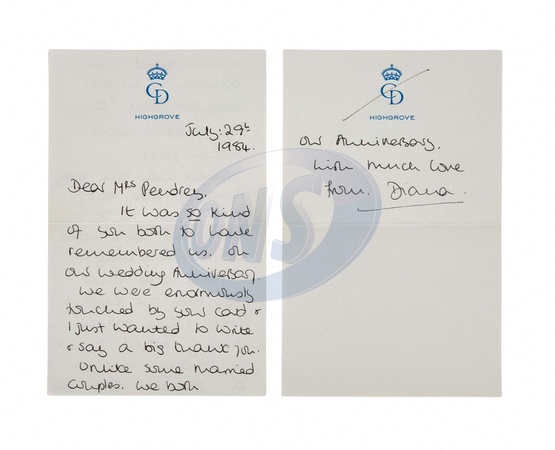 CD
HIGHGROVE
July: 29th
1984.
Dear Mrs Pendrey,
It was so kind
of you both to have
remembered us, on
our wedding Anniversary.
We were enormously
touched by your card &
I just wanted to write
& say a big thank you.
Unlike some married
couples, we both
CD
HIGHGROVE
our Anniversary.
With much love
from, Diana.
UNS